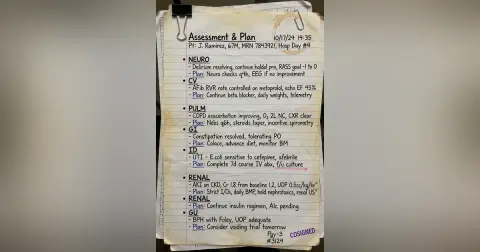 Assessment & Plan
10/17/24 14:35
Pt: J. Ramirez, 67M, MRN 7843921, Hosp Day #4
• NEURO
- Delirium resolving, continue haldol prn, RASS goal -1 to 0
Plan: Neuro checks q4h, EEG if no improvement
• CV
- AFib RVR rate controlled on metoprolol, echo EF 45%
Plan: Continue beta blocker, daily weights, telemetry
• PULM
- COPD exacerbation improving, O₂ 2L NC, CXR clear
Plan: Nebs q6h, steroids taper, incentive spirometry
• GI
- Constipation resolved, tolerating PO
Plan: Colace, advance diet, monitor BM
• ID
- UTI - E.coli sensitive to cefepime, afebrile
Plan: Complete 7d course IV abx, f/u culture
• RENAL
- AKI on CKD, Cr 1.8 from baseline 1.2, UOP 0.5cc/kg/hr
Plan: Strict I/Os, daily BMP, hold nephrotoxics, renal US
• RENAL
Plan: Continue insulin regimen, A1c pending
• GU
- BPH with Foley, UOP adequate
Plan: Consider voiding trial tomorrow
#3124
COSIGNED